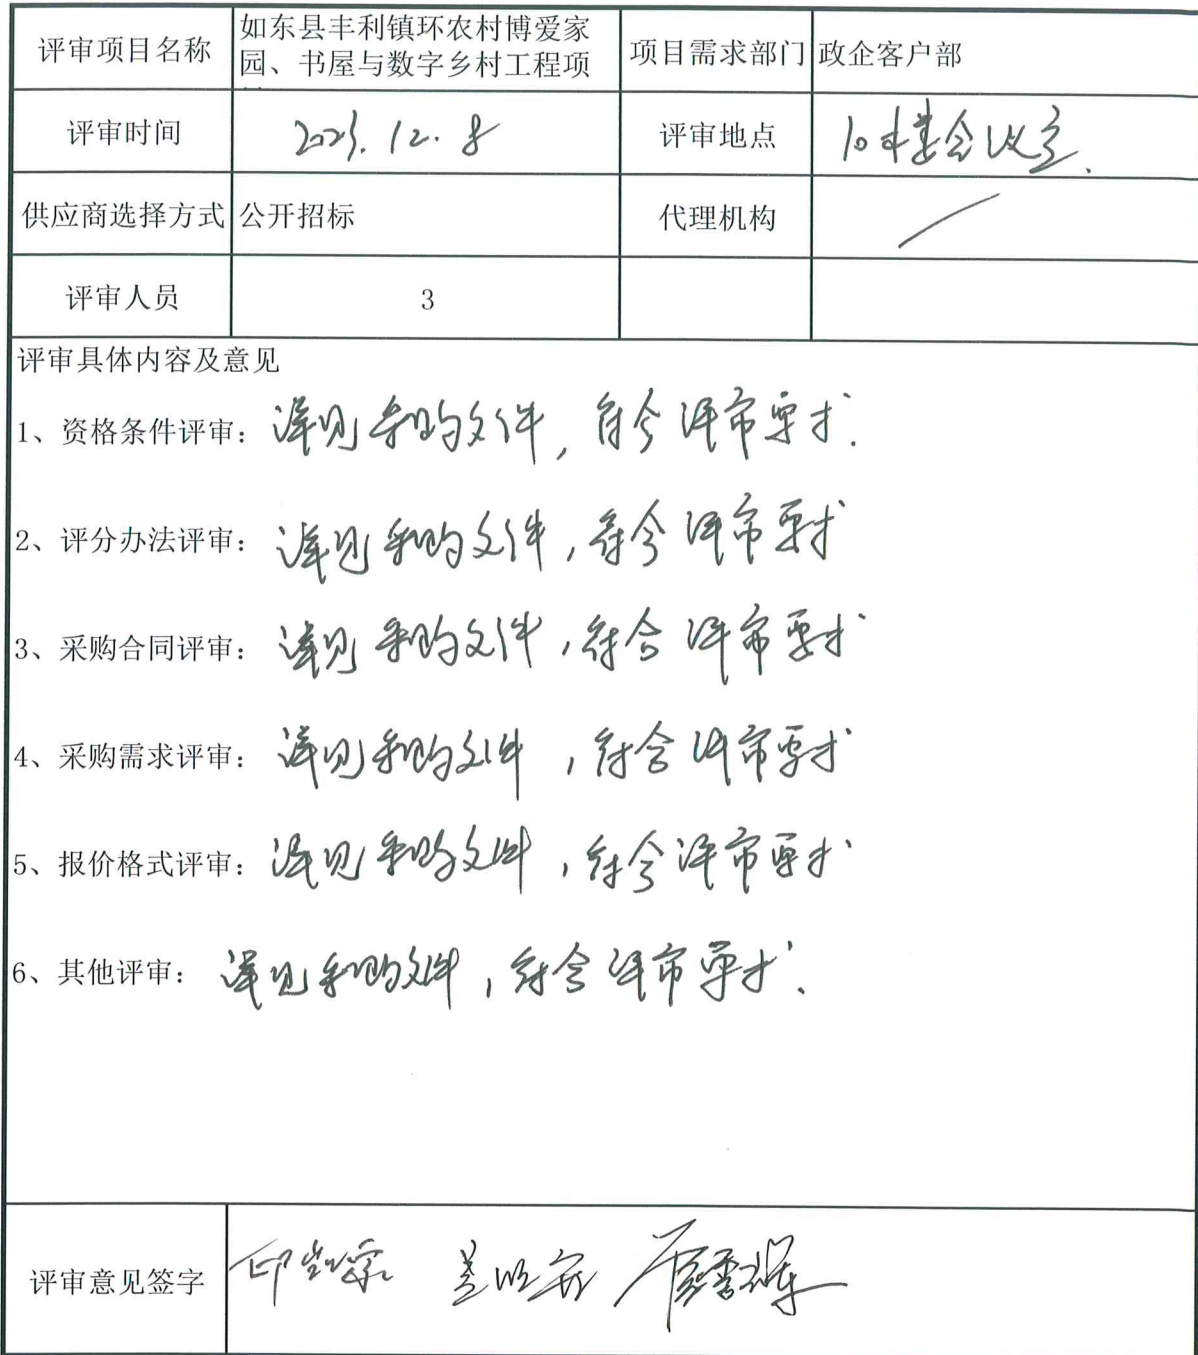 评审项目名称
如东县丰利镇环农村博爱家
园、书屋与数字乡村工程项
项目需求部门
政企客户部
评审时间
2023.12.8
评审地点
10楼会议室.
供应商选择方式
公开招标
代理机构
评审人员
3
评审具体内容及意见
1、资格条件评审：详见采购文件，符合评审要求.
2、评分办法评审：详见采购文件，符合评审要求
3、采购合同评审：详见采购文件，符合评审要求
4、采购需求评审：详见采购文件，符合评审要求
5、报价格式评审：详见采购文件，符合评审要求
6、其他评审：详见采购文件，符合评审要求.
评审意见签字